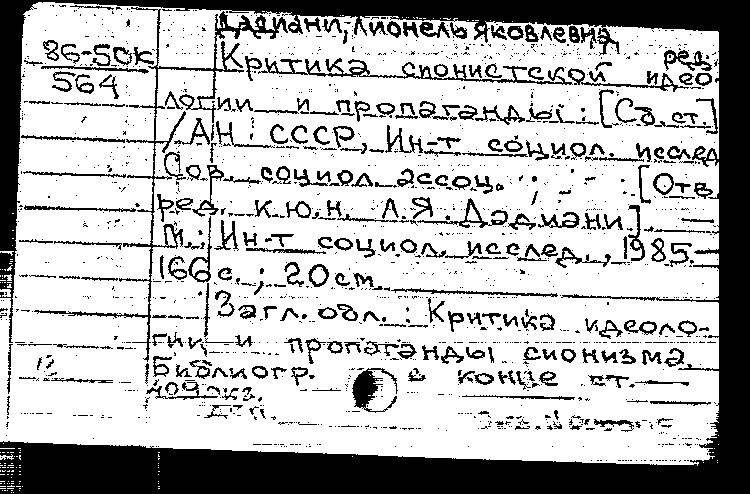 Дадиани, Лионель Яковлевна
ред.
86-50к
564
Критика сионистской идео-
логии и пропаганды : [Сб. ст.]
/АН СССР, Ин-т социол. исслед
Сов. социол. ассоц. ; [Отв.
ред. к.ю.н. Л.Я. Дадиани]. —
М.: Ин-т социол. исслед., 1985.—
166 с. ; 20 см.
Загл. обл. : Критика идеоло-
гии и пропаганды сионизма.
Библиогр. в конце ст. —
409 экз.